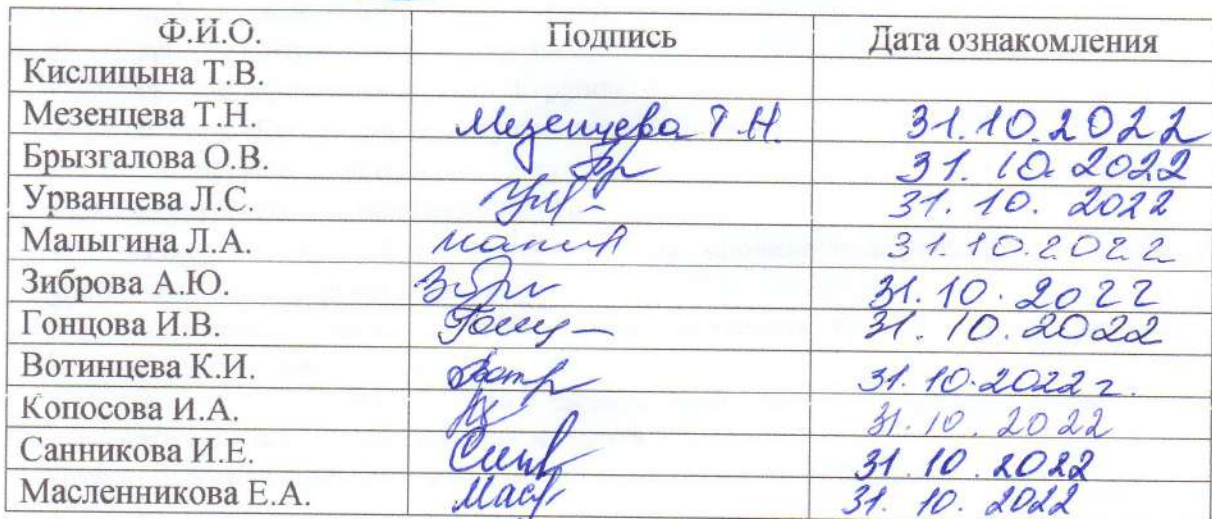 Ф.И.О. Подпись Дата ознакомления
Кислицына Т.В.
Мезенцева Т.Н. Мезенцева Т.Н. 31.10.2022
Брызгалова О.В. 31.10.2022
Урванцева Л.С. 31.10.2022
Малыгина Л.А. 31.10.2022
Зиброва А.Ю. 31.10.2022
Гонцова И.В. 31.10.2022
Вотинцева К.И. 31.10.2022 г.
Копосова И.А. 31.10.2022
Санникова И.Е. 31.10.2022
Масленникова Е.А. 31.10.2022